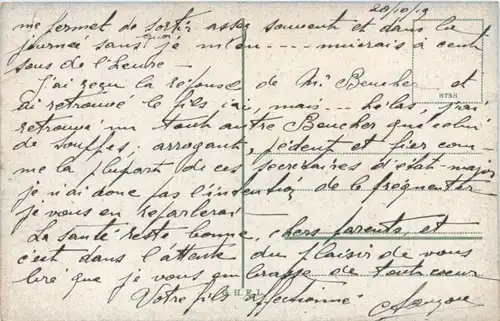 20/10/19
me permet de sortir assez souvent et dans la
journée sans quoi je m'en --- nuierais à cent
sous de l'heure —
J'ai reçu la réponse de Mr Beucher et
ai retrouvé le fils ici, mais -- hélas, j'ai
retrouvé un tout autre Beucher que celui
de Souppes; arrogant, pédent et fier com-
me la plupart de ces secrétaires d'état-major
je n'ai donc pas l'intention de le fréquenter
je vous en reparlerai —
La santé reste bonne, chers parents, et
c'est dans l'attente du plaisir de vous
lire que je vous embrasse de tout coeur
Votre fils affectionné